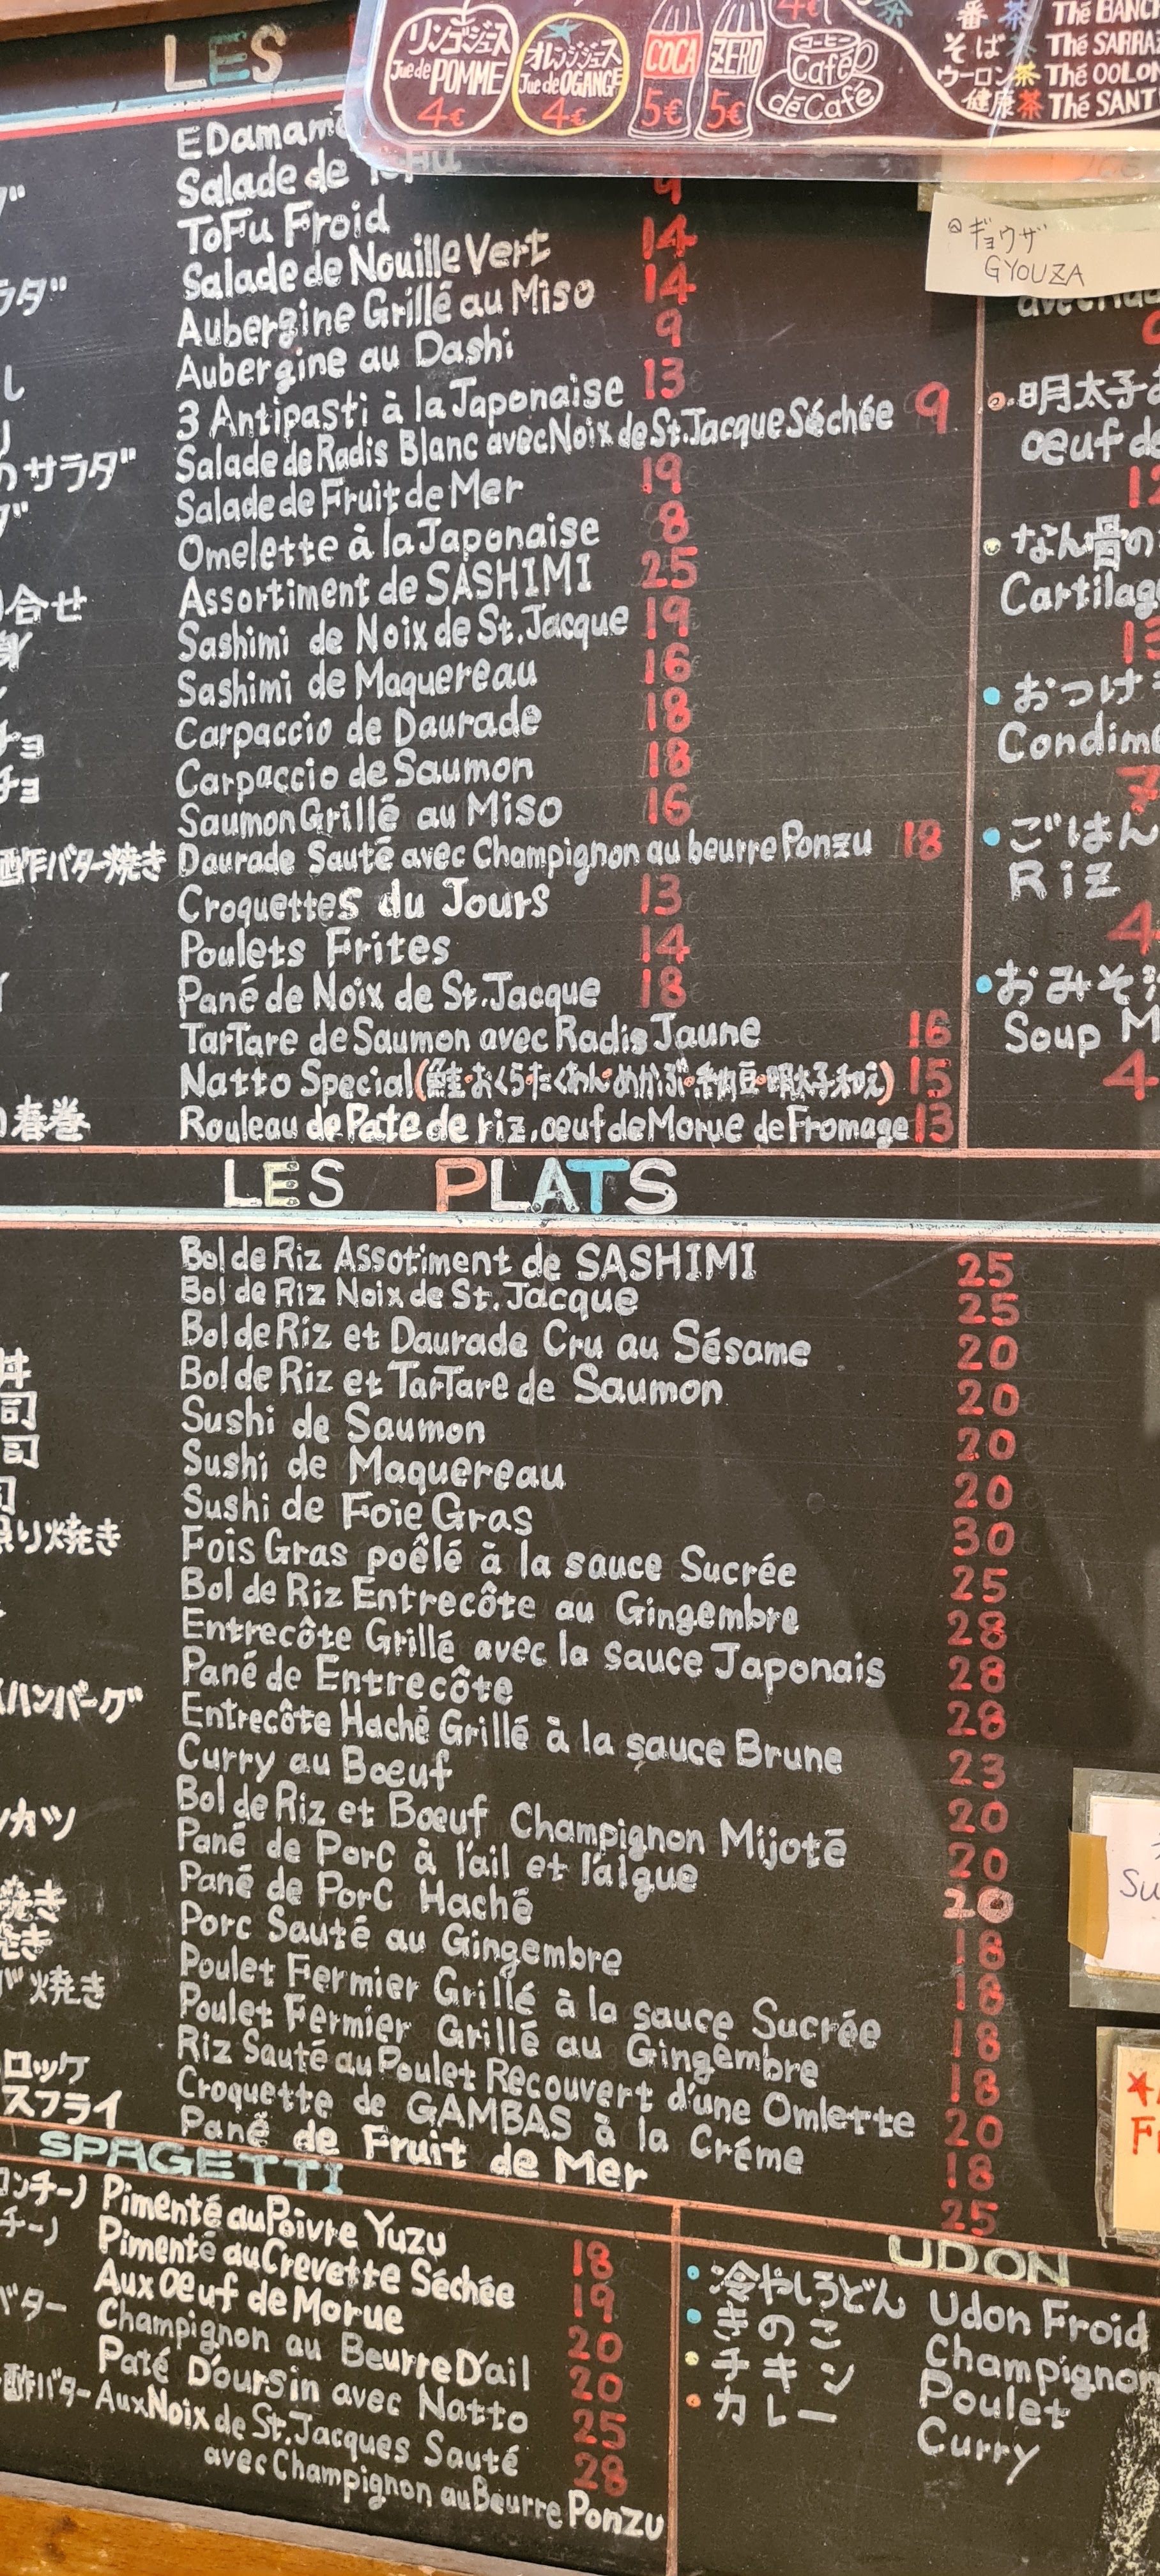 リンゴジュース
Jue de POMME
4€
オレンジジュース
Jue de OGANGE
4€
COCA
5€
ZERO
5€
4€
コーヒー
Café
déCafé
番茶 Thé BANCH
そば茶 Thé SARRAZ
ウーロン茶 Thé OOLON
健康茶 Thé SANT
ギョウザ
GYOUZA
LES
EDamame
Salade de
ToFu Froid 9
Salade de Nouille Vert 14
Aubergine Grillé au Miso 14
Aubergine au Dashi 9
3 Antipasti à la Japonaise 13
Salade de Radis Blanc avec Noix de St.Jacque Séchée 9
Salade de Fruit de Mer 19
Omelette à la Japonaise 8
Assortiment de SASHIMI 25
Sashimi de Noix de St.Jacque 19
Sashimi de Maquereau 16
Carpaccio de Daurade 18
Carpaccio de Saumon 18
Saumon Grillé au Miso 16
Daurade Sauté avec Champignon au beurre Ponzu 18
Croquettes du Jours 13
Poulets Frites 14
Pané de Noix de St.Jacque 18
TarTare de Saumon avec Radis Jaune 16
Natto Special(鮭・おくら・たくあん・めかぶ・納豆・明太子和え) 15
Rouleau de Pate de riz, oeuf de Morue de Fromage 13
ラダ"
し
のサラダ"
合せ
チョ
チョ
バター焼き
春巻
明太子お
oeuf de
12
なん骨の
Cartilag
13
おつけ
Condime
7
ごはん
Riz
4
おみそ汁
Soup M
4
LES PLATS
Bol de Riz Assotiment de SASHIMI 25
Bol de Riz Noix de St.Jacque 25
Bol de Riz et Daurade Cru au Sésame 20
Bol de Riz et TarTare de Saumon 20
Sushi de Saumon 20
Sushi de Maquereau 20
Sushi de Foie Gras 30
Fois Gras poêlé à la sauce Sucrée 25
Bol de Riz Entrecôte au Gingembre 28
Entrecôte Grillé avec la sauce Japonais 28
Pané de Entrecôte 28
Entrecôte Haché Grillé à la sauce Brune 23
Curry au Bœuf 20
Bol de Riz et Bœuf Champignon Mijoté 20
Pané de Porc à l'ail et l'algue 20
Pané de Porc Haché 18
Porc Sauté au Gingembre 18
Poulet Fermier Grillé à la sauce Sucrée 18
Poulet Fermier Grillé au Gingembre 18
Riz Sauté au Poulet Recouvert d'une Omlette 20
Croquette de GAMBAS à la Créme 18
Pané de Fruit de Mer 25
丼
司
司
司
照り焼き
ハンバーグ
カツ
焼き
焼き
焼き
ロッケ
スフライ
Su
SPAGETTI
Pimenté au Poivre Yuzu 18
Pimenté au Crevette Séchée 19
Aux Oeuf de Morue 20
Champignon au Beurre D'ail 20
Paté D'oursin avec Natto 25
Aux Noix de St.Jacques Sauté 28
avec Champignon au Beurre Ponzu
チーノ
バター
酢バター
UDON
冷やしうどん Udon Froid
きのこ Champignon
チキン Poulet
カレー Curry